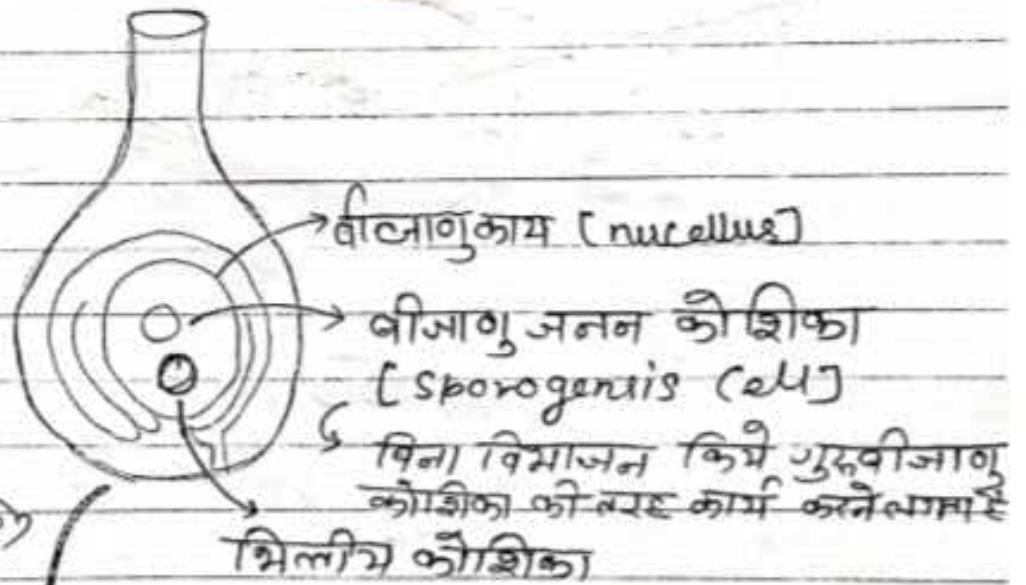 बीजाणुकाय [nucellus]
बीजाणु जनन कोशिका
[sporogensis cell]
बिना विभाजन किये गुरुबीजाणु
कोशिका की तरह कार्य करने लगता है
भित्तीय कोशिका